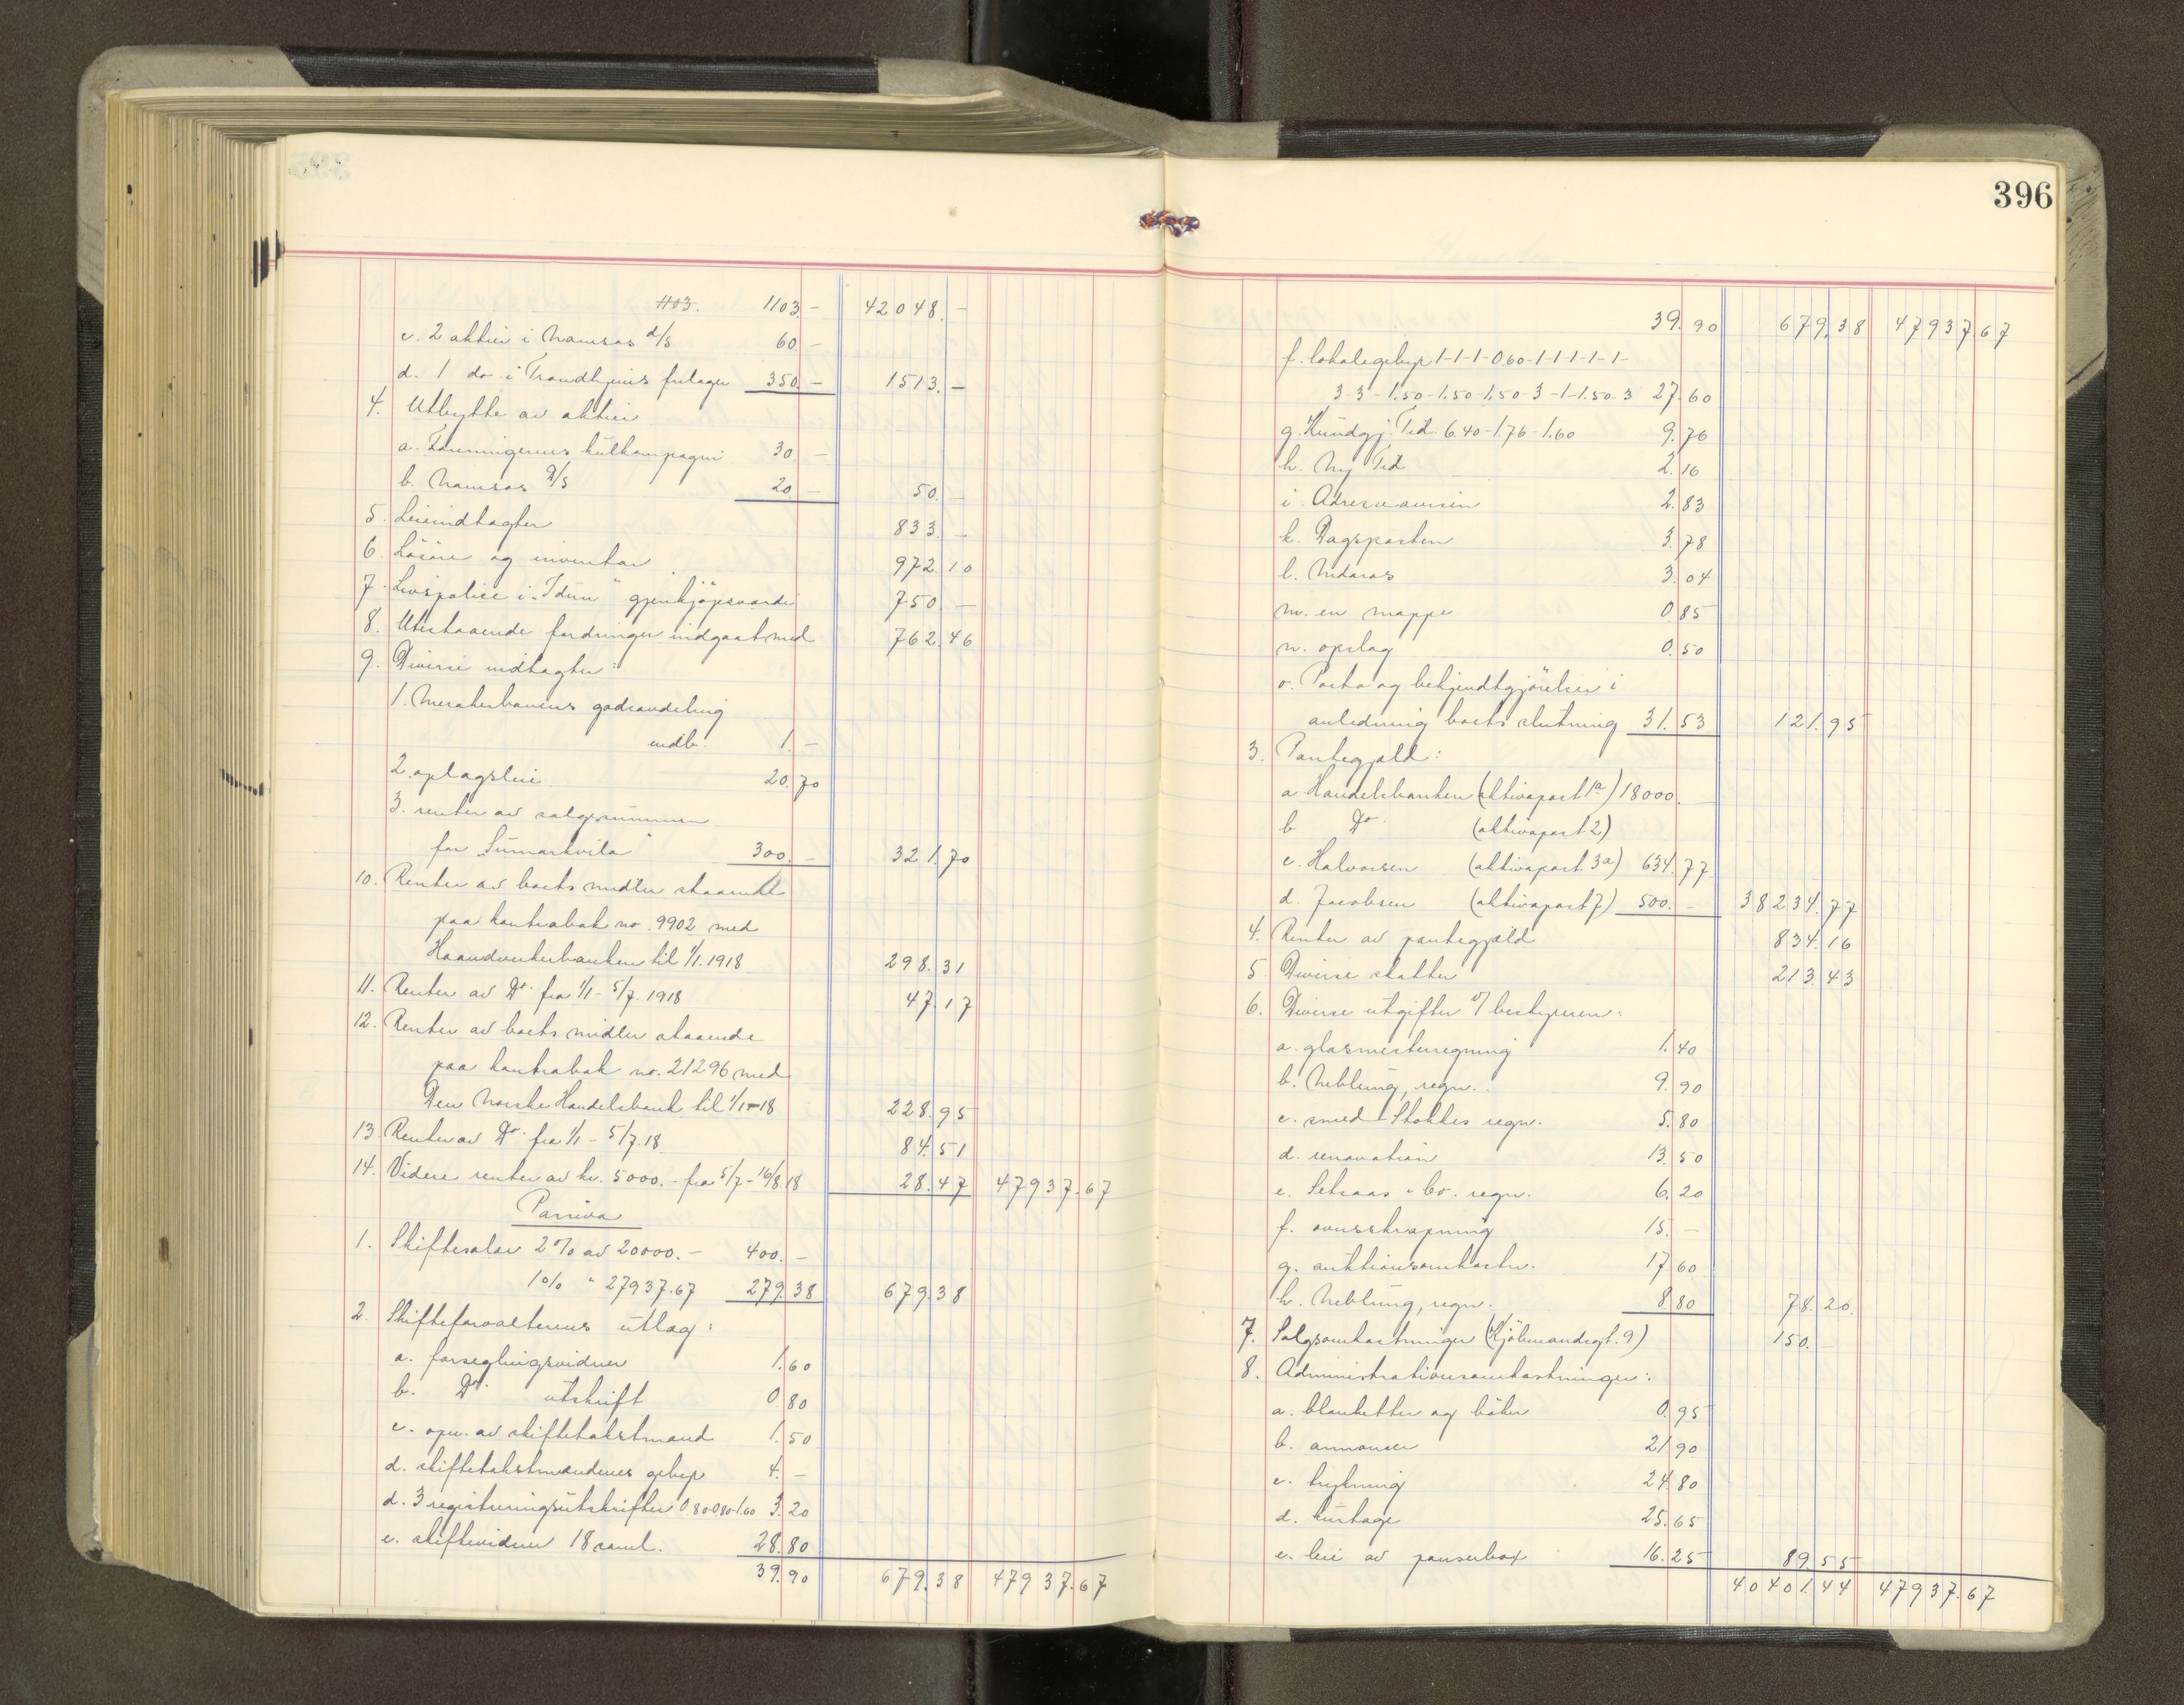 396
1103. 1103.- 42048.-
c. 2 aktier i Namsos d/s 60.-
d. 1 do. i Trondhjems frilager 350.- 1513.-
4. Utbytte av aktier
a. Foreningernes kulkompagni 30.-
b. Namsos d/s 20.- 50.-
5. Leieindtægter 833.-
6. Løsøre og inventar 972.10
7. Livspolice i "Idun" gjenkjøpsværdi 750.-
8. Utestaaende fordringer indgaat med 762.46
9. Diverse indtægter:
1. Merakerbanens godsavdeling
indb. 1.-
2. oplagsleie 20.70
3. renter av salgssummen
for "Sumarkvila" 300.- 321.70
10. Renter av boets midler staaende
paa kontrabok no. 9902 med
Haandverkerbanken til 1/1.1918 298.31
11. Renter av Do. fra 1/1 - 5/7.1918 47.17
12. Renter av boets midler staaende
paa kontrabok no. 21296 med
Den Norske Handelsbank til 1/1-18 228.95
13. Renter av Do. fra 1/1 - 5/7.18 84.51
14. Videre renter av kr. 5000.- fra 5/7 - 16/8.18 28.47 47937.67
Passiva
1. Skiftesalær 2% av 20000.- 400.-
1% " 27937.67 279.38 679.38
2. Skifteforvalterens utlæg:
a. forseglingsvidner 1.60
b. Do. utskrift 0.80
c. opn. av skiftetakstmænd 1.50
d. skiftetakstmændenes gebyr 4.-
d. 3 registreringsutskrifter 0.80-0.80-1.60 3.20
e. skiftevidner 18 saml. 28.80
39.90 679.38 47937.67
39.90 679.38 47937.67
f. lokalegebyr 1-1-1-0.60-1-1-1-1-1-
3-3-1.50-1.50-1.50-3-1-1.50-3 27.60
g. Kundgj. Tid. 6.40-1.76-1.60 9.76
h. Ny Tid 2.16
i. Adresseavisen 2.83
k. Dagsposten 3.78
l. Nidaros 3.04
m. en mappe 0.85
n. opslag 0.50
o. Porto og bekjendtgjørelser i
anledning boets slutning 31.53 121.95
3. Pantegjæld:
a. Handelsbanken (aktivapost 1a) 18000.
b. Do. (aktivapost 2)
c. Halvorsen (aktivapost 3a) 634.77
d. Jacobsen (aktivapost 7) 500.- 38234.77
4. Renter av pantegjæld 834.16
5. Diverse skatter 213.43
6. Diverse utgifter v/ bestyreren:
a. glasmesterregning 1.40
b. Neblung, regn. 9.90
c. smed Stokkes regn. 5.80
d. renovation 13.50
e. Setsaas & Co. regn. 6.20
f. ovnsskrapning 15.-
g. auktionsomkostn. 17.60
h. Neblung, regn. 8.80 78.20
7. Salgsomkostninger (Kjøbmandsgt. 9) 150.
8. Administrationsomkostninger:
a. blanketter og bøker 0.95
b. annoncer 21.90
c. trykning 24.80
d. kurtage 25.65
e. leie av panserbox 16.25 89.55
40401.44 47937.67